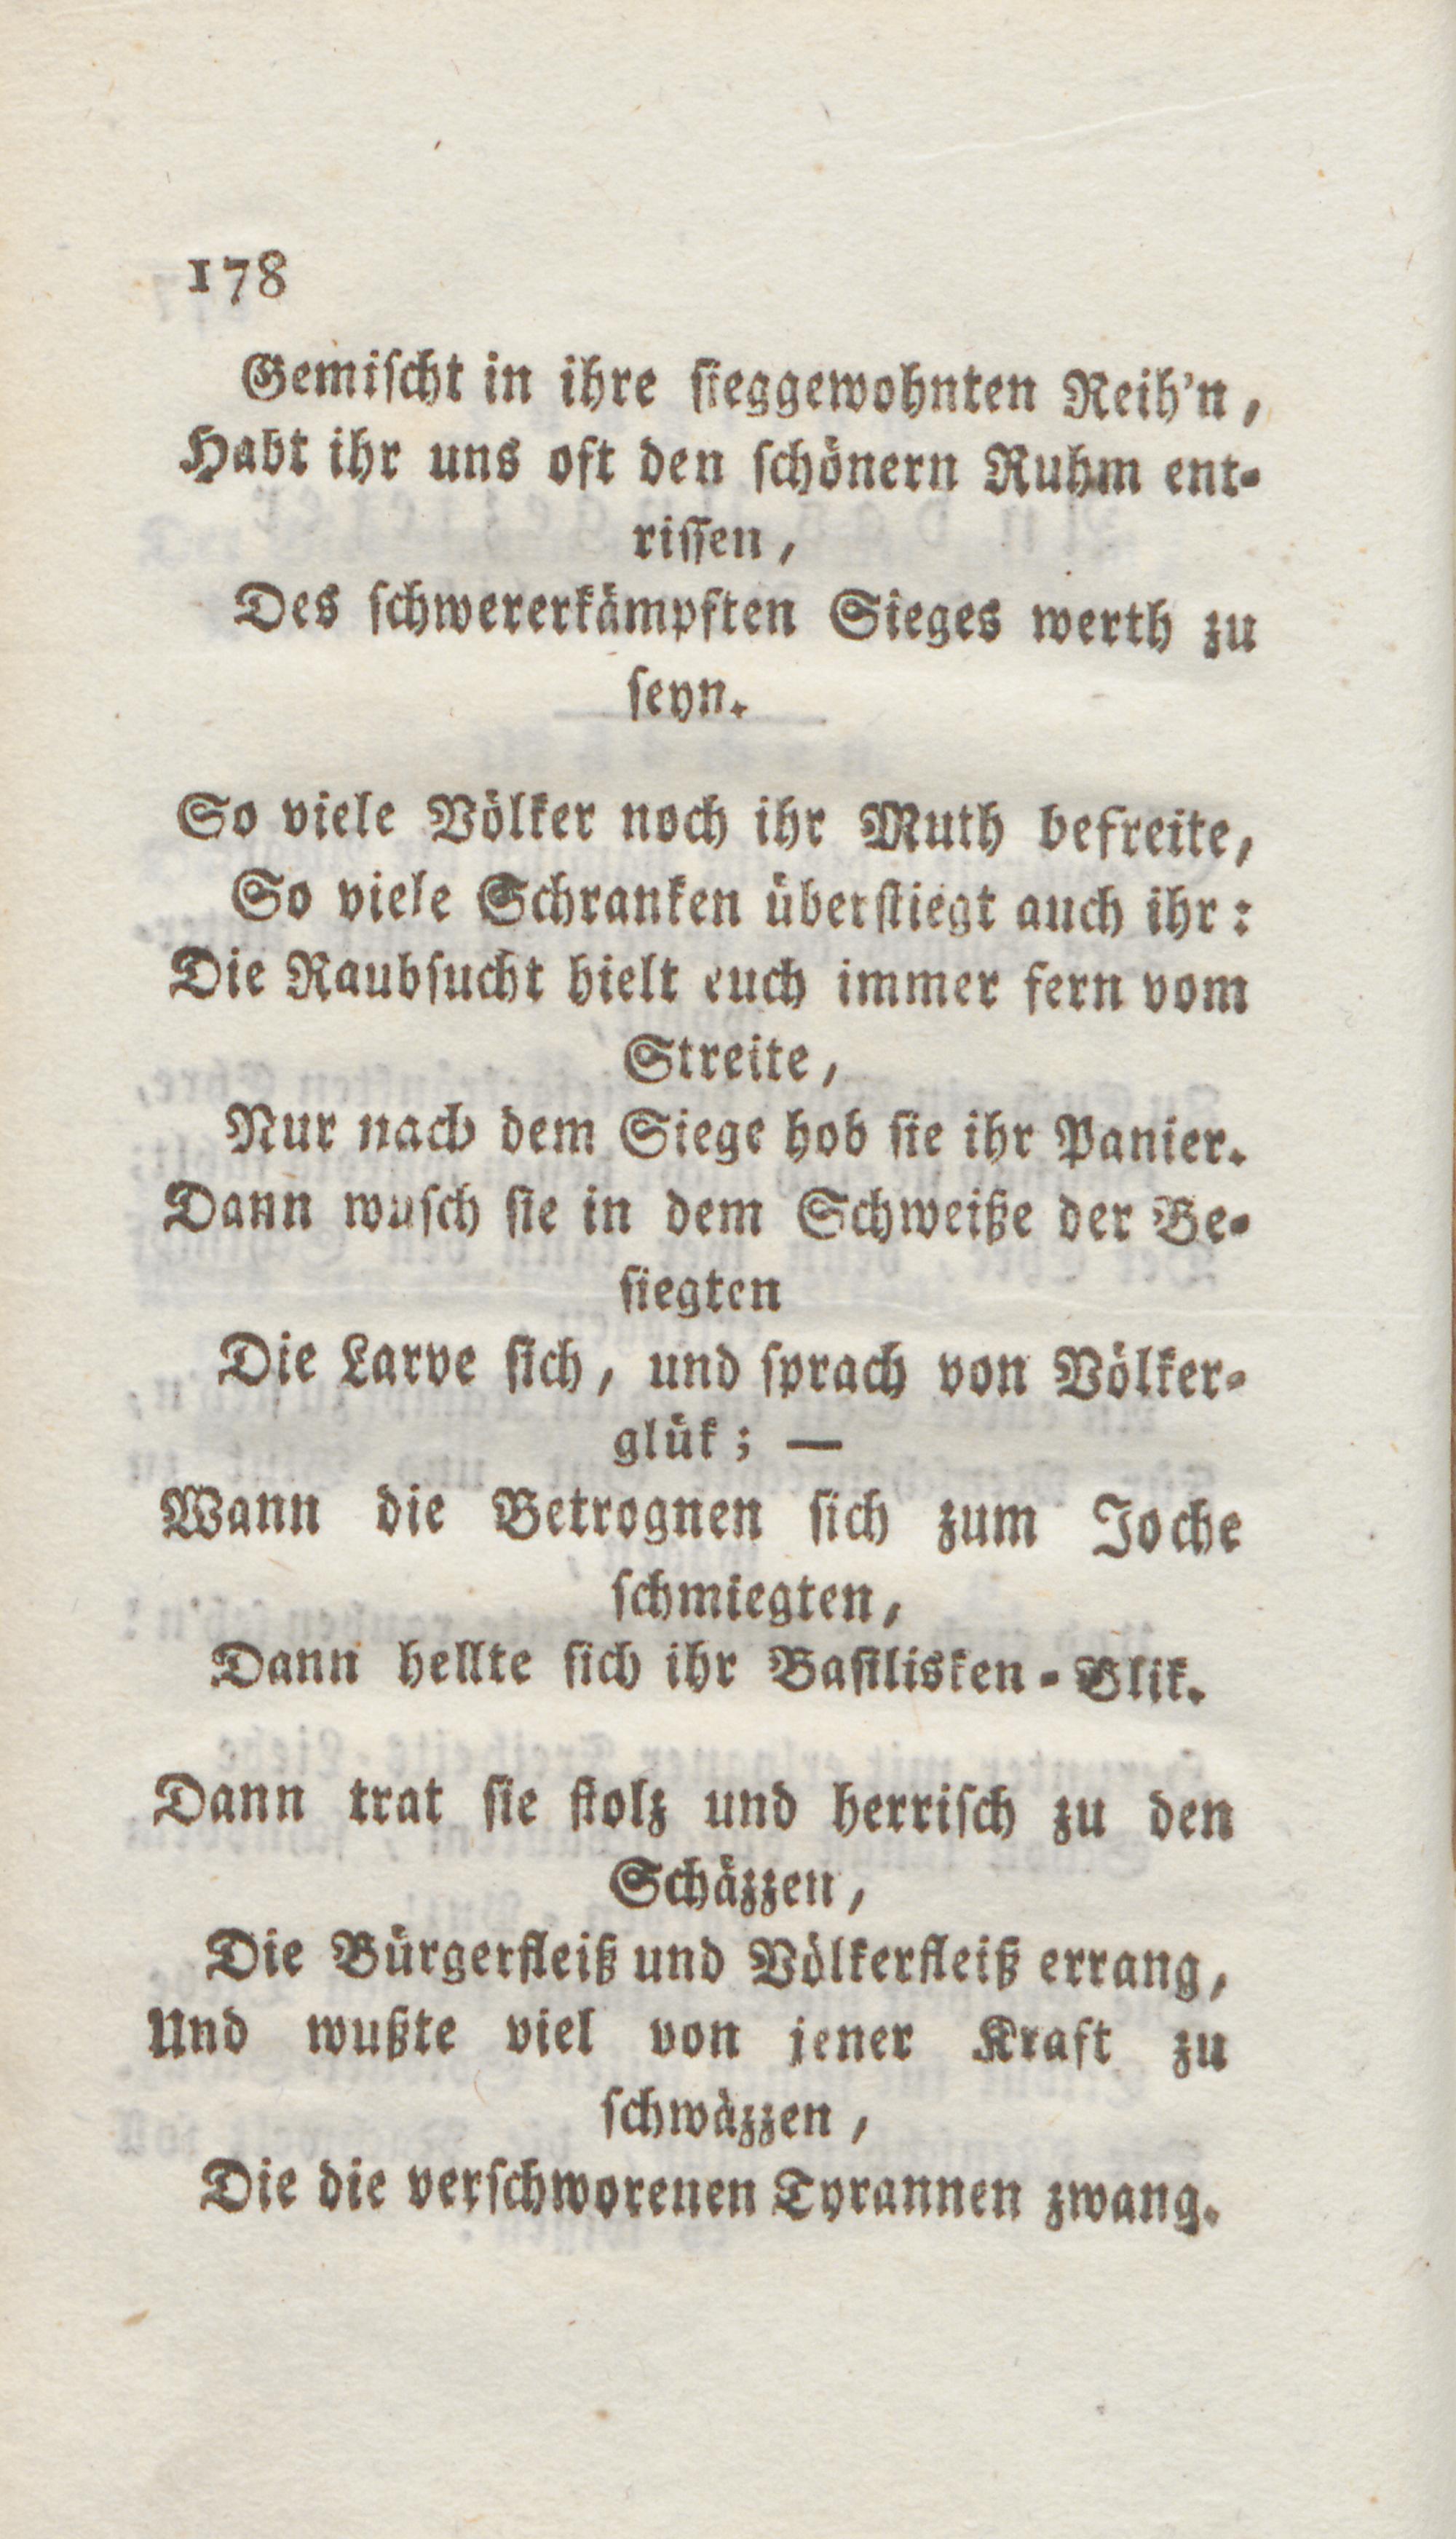 178
Gemischt in ihre sieggewohnten Reih'n,
Habt ihr uns oft den schönern Ruhm ent-
rissen,
Des schwererkämpften Sieges werth zu
seyn.
So viele Völker noch ihr Muth befreite,
So viele Schranken überstiegt auch ihr:
Die Raubsucht hielt euch immer fern vom
Streite,
Nur nach dem Siege hob sie ihr Panier.
Dann wusch sie in dem Schweiße der Be-
siegten
Die Larve sich, und sprach von Völker-
glük; —
Wann die Betrognen sich zum Joche
schmiegten,
Dann hellte sich ihr Basilisken-Blik.
Dann trat sie stolz und herrisch zu den
Schäzzen,
Die Bürgerfleiß und Völkerfleiß errang,
Und wußte viel von jener Kraft zu
schwäzzen,
Die die verschworenen Tyrannen zwang.